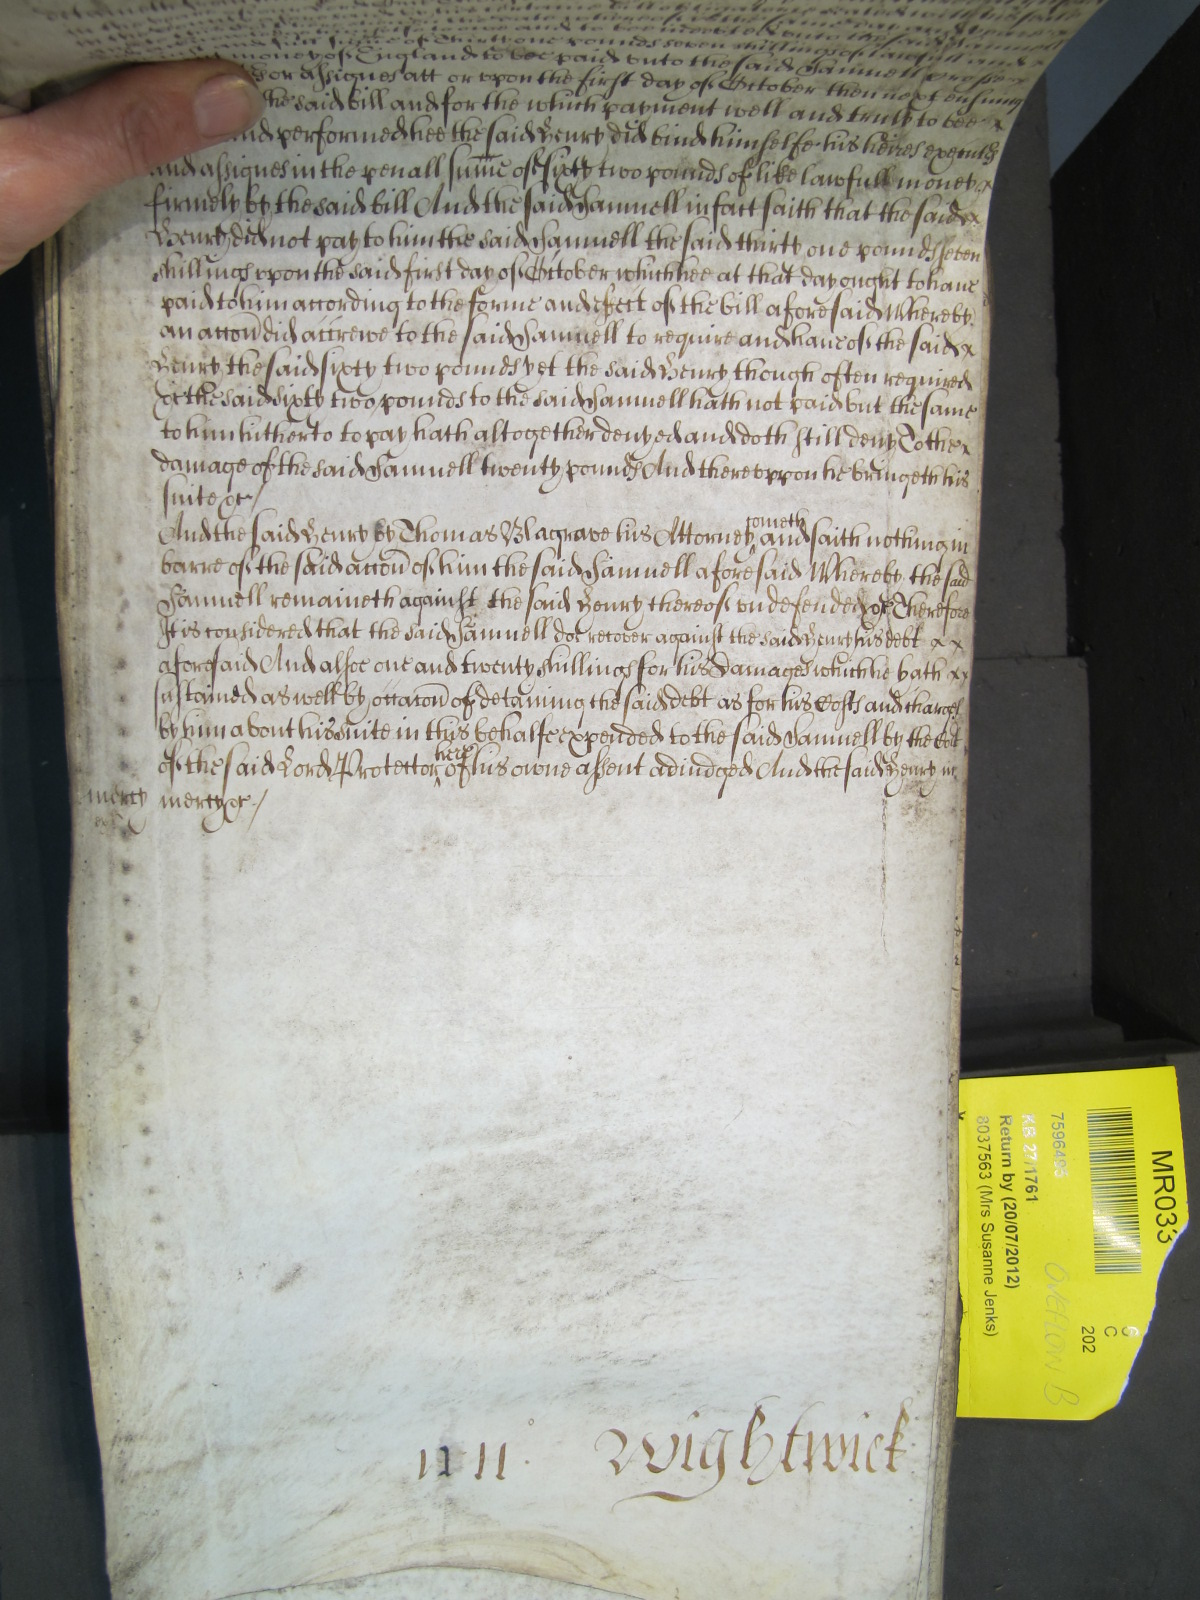 money of England to bee paid unto the said Samuell
or assignes att or vpon the first day of October then next ensuing
the said bill and for the which payment well and truly to bee x
and performed hee the said Henry did bind himselfe his heires execut
and assignes in the penall sum̄e of sixty two pounds of like lawfull money x
firmely by the said bill And the said Samuell in fact saith that the said x
Henry did not pay to him the said Samuell the said thirty one pounds seven
shillings vpon the said first day of October which hee at that day ought to haue
paid to him according to the forme and efect of the bill aforesaid Whereby
an accon̄ did accrewe to the said Samuell to require and haue of the said x
Henry the said sixty two pounds yet the said Henry though often required
&c the said sixty two pounds to the said Samuell hath not paid but the same
to him hitherto to pay hath altogether denyed and doth still deny To the x
damage of the said Samuell twenty pounds And therevppon he bringeth his
suite &c /
And the said Henry by Thomas Blagrave his Attorney cometh and saith nothing in
barre of the said accon̄ of him the said Samuell aforesaid Whereby the said
Samuell remaineth against the said Henry thereof vndefended &c Therefore
It is considered that the said Samuell doe recover against the said Henry his debt x x
aforesaid And alsoe one and twenty shillings for his Damages which he hath x x
sustained as well by occacon̄ of detaining the said debt as for his Costs and charges
by him about his suite in this behalfe expended to the said Samuell by the Cot
of the said Lord Protector here of his owne assent adiudged And the said Henry in
mercy mercy &c /
1111 Wightwick
MR033
7596495
KB 27/1761
Return by (20/07/2012)
8037563 (Mrs Susanne Jenks)
Overflow B
C
202